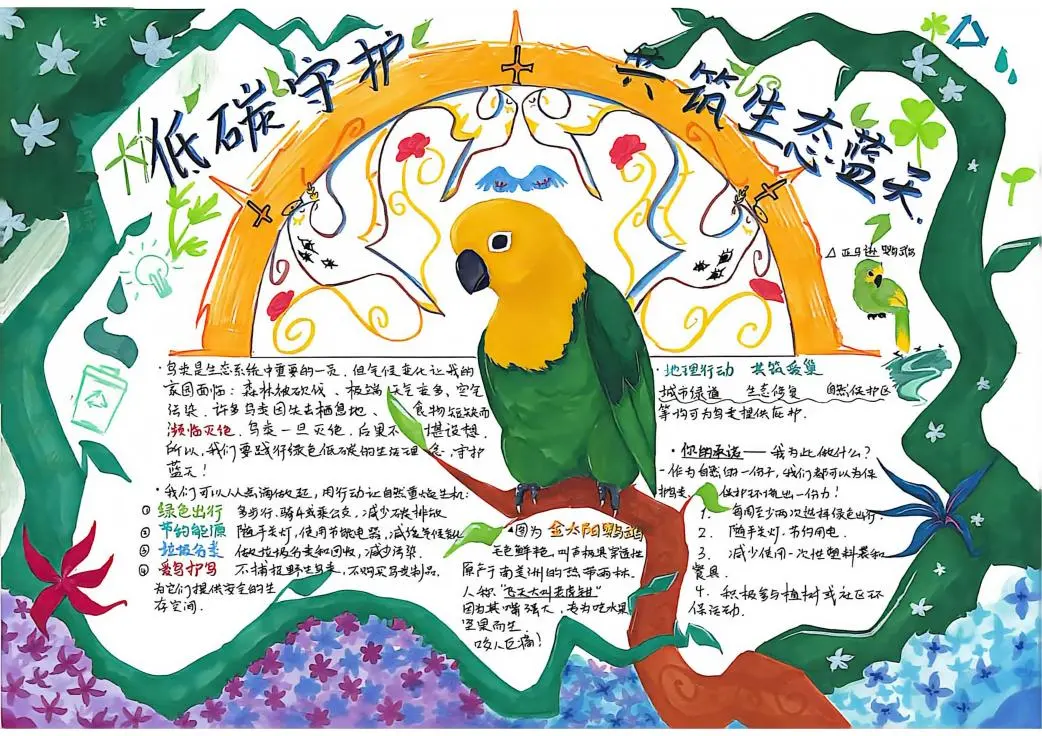 低碳守护
共筑生态蓝天
△亚马逊鹦鹉
·鸟类是生态系统中重要的一页,但气候变化让我的
家园面临:森林被砍伐、极端天气变多、空气
污染.许多鸟类因失去栖息地、食物短缺而
濒临灭绝.鸟类一旦灭绝,后果不堪设想.
所以,我们要践行绿色低碳的生活理念,守护
蓝天!
·我们可以从点滴做起,用行动让自然重焕生机:
① 绿色出行 多步行、骑车或乘公交,减少碳排放
② 节约能源 随手关灯,使用节能电器,减缓气候变化
③ 垃圾分类 做垃圾分类和回收,减少污染.
④ 爱鸟护鸟 不捕捉野生鸟类,不购买鸟类制品,
为它们提供安全的生
存空间.
▲图为 金太阳鹦鹉
毛色鲜艳,叫声极具穿透性
原产于南美洲的热带雨林.
人称"飞天大叫老虎钳"
因为其嘴强大,专为吃水果
坚果而生.
咬人巨痛!
·地理行动 共筑爱巢
城市绿道 生态修复 自然保护区
等均可为鸟类提供庇护.
·你的承诺——我为此做什么?
·作为自然的一份子,我们都可以为保
护鸟类、保护环境出一份力!
1. 每周至少两次选择绿色出行.
2. 随手关灯,节约用电.
3. 减少使用一次性塑料袋和
餐具.
4. 积极参与植树或社区环
保活动.